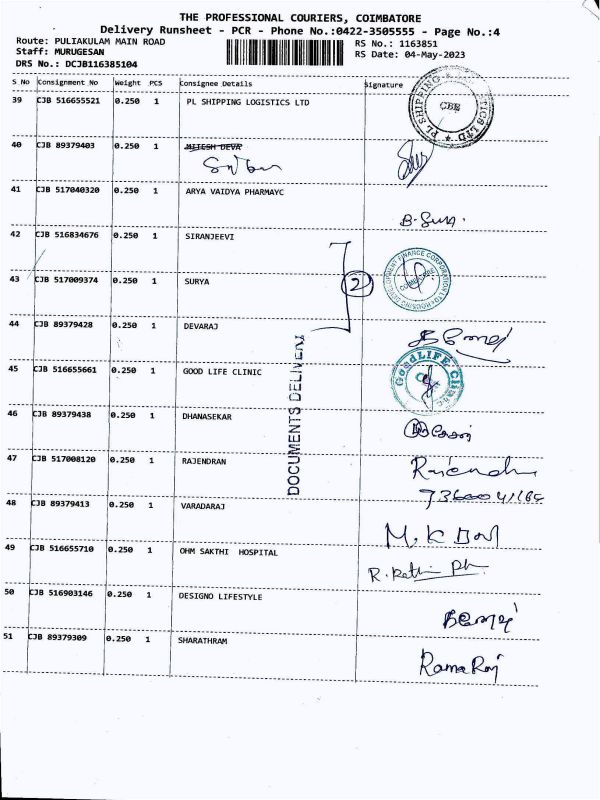 THE PROFESSIONAL COURIERS, COIMBATORE
Delivery Runsheet - PCR - Phone No.:0422-3505555 - Page No.:4
Route: PULIAKULAM MAIN ROAD
RS No.: 1163851
Staff: MURUGESAN
RS Date: 04-May-2023
DRS No.: DCJB116385104
S No Consignment No Weight PCS Consignee Details Signature
39 CJB 516655521 0.250 1 PL SHIPPING LOGISTICS LTD
PL SHIPPING & LOGISTICS LTD
CBE
40 CJB 89379403 0.250 1 MITESH DEVA
41 CJB 517040320 0.250 1 ARYA VAIDYA PHARMAYC
42 CJB 516834676 0.250 1 SIRANJEEVI
43 CJB 517009374 0.250 1 SURYA
2
COIMBATORE
44 CJB 89379428 0.250 1 DEVARAJ
45 CJB 516655661 0.250 1 GOOD LIFE CLINIC
GoodLIFE Clinic
DOCUMENTS DELIVERI
46 CJB 89379438 0.250 1 DHANASEKAR
47 CJB 517008120 0.250 1 RAJENDRAN
48 CJB 89379413 0.250 1 VARADARAJ
49 CJB 516655710 0.250 1 OHM SAKTHI HOSPITAL
50 CJB 516903146 0.250 1 DESIGNO LIFESTYLE
51 CJB 89379309 0.250 1 SHARATHRAM
RamaRaj